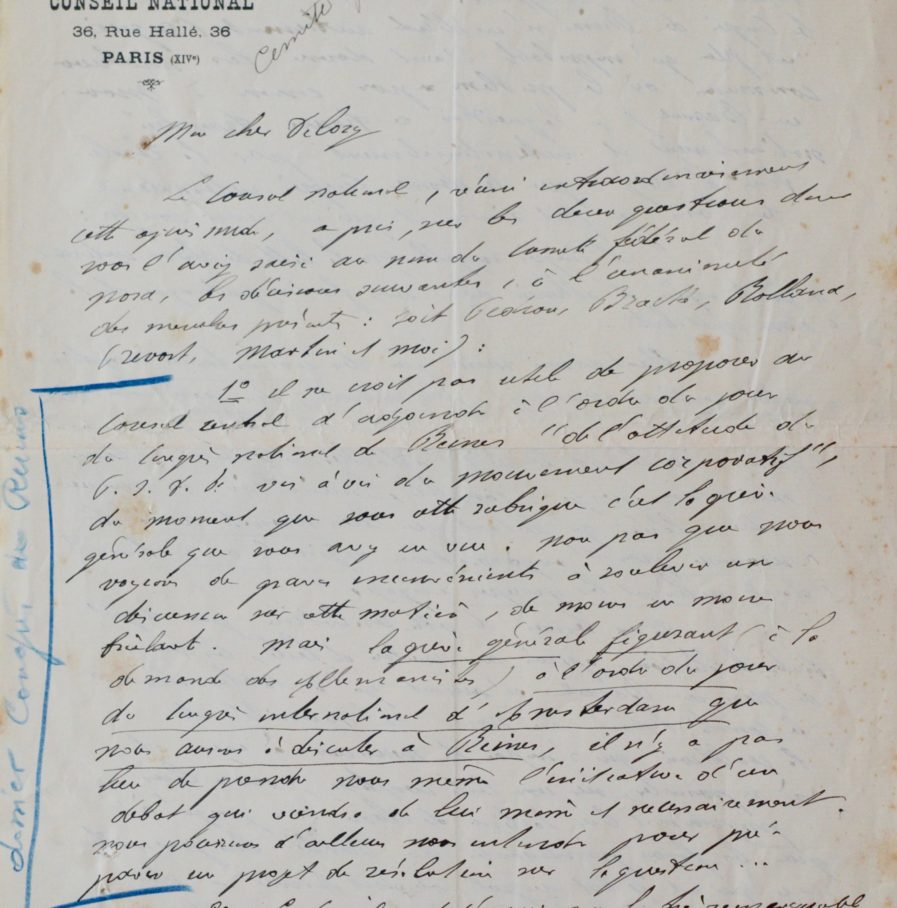 CONSEIL NATIONAL
36, Rue Hallé, 36
PARIS (XIVe)
Mon cher Delory
Le Conseil national, réuni extraordinairement
cette après midi, a pris, sur les deux questions dont
vous l'avez saisi au nom du Comité fédéral du
nord, les décisions suivantes, à l'unanimité
des membres présents : soit Bracke, Rolland,
Prévost, Martin et moi) :
1° il ne croit pas utile de proposer au
Conseil central d'adjoindre à l'ordre du jour
du Congrès national de Reims "de l'attitude du
P. S. d. F. vis à vis du mouvement corporatif",
du moment que sous cette rubrique c'est la grève
générale que vous avez en vue. non pas que nous
voyions de graves inconvénients à soulever une
discussion sur cette matière, de moins en moins
brûlante. mais la grève générale figurant (à la
demande des allemanistes) à l'ordre du jour
du Congrès international d'Amsterdam que
nous aurons à discuter à Reims, il n'y a pas
lieu de prendre nous même l'initiative d'un
débat qui viendra de lui même et nécessairement.
nous pouvons d'ailleurs nous entendre pour pré-
parer un projet de résolution sur la question ...
dernier Congrès de Reims